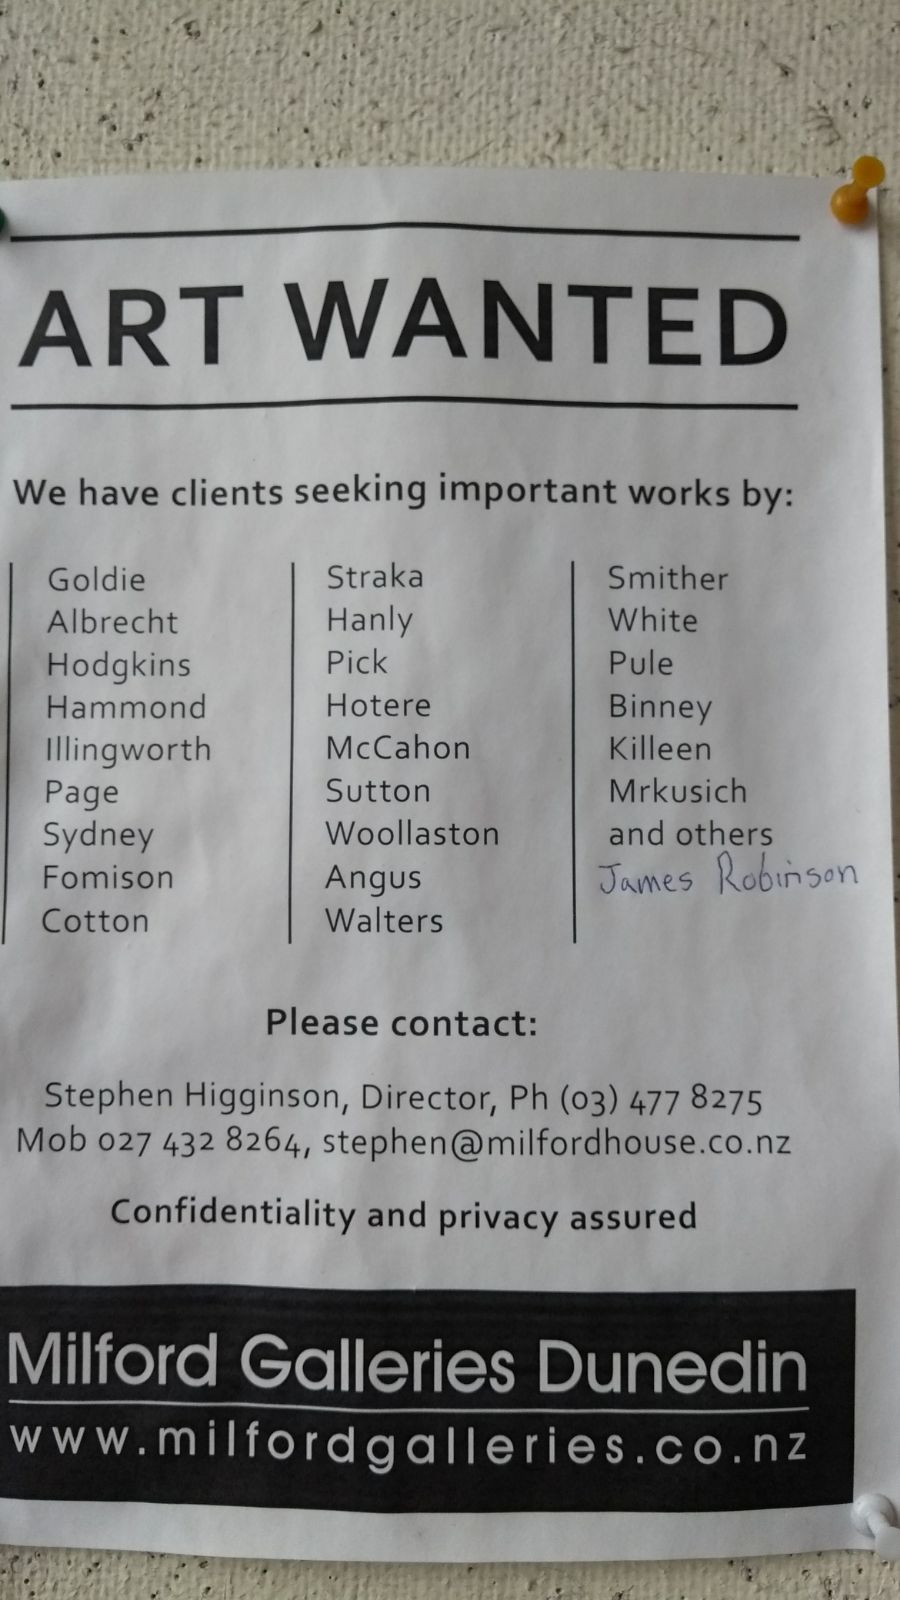 ART WANTED
We have clients seeking important works by:
Goldie
Albrecht
Hodgkins
Hammond
Illingworth
Page
Sydney
Fomison
Cotton
Straka
Hanly
Pick
Hotere
McCahon
Sutton
Woollaston
Angus
Walters
Smither
White
Pule
Binney
Killeen
Mrkusich
and others
James Robinson
Please contact:
Stephen Higginson, Director, Ph (03) 477 8275
Mob 027 432 8264, stephen@milfordhouse.co.nz
Confidentiality and privacy assured
Milford Galleries Dunedin
www.milfordgalleries.co.nz